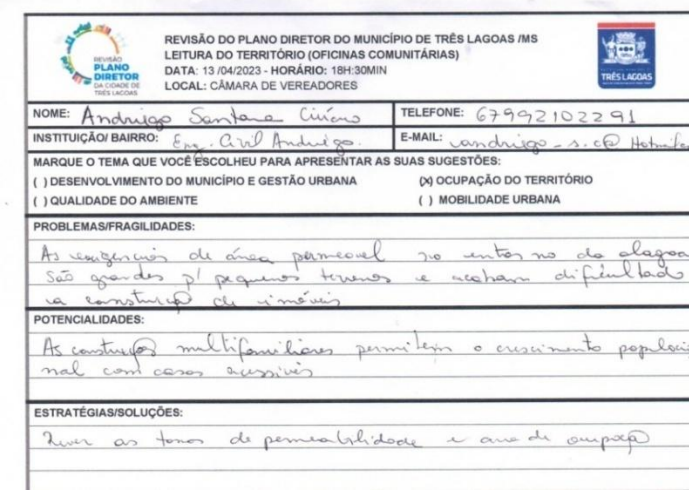 REVISÃO
PLANO
DIRETOR
DA CIDADE DE
TRÊS LAGOAS
REVISÃO DO PLANO DIRETOR DO MUNICÍPIO DE TRÊS LAGOAS /MS
LEITURA DO TERRITÓRIO (OFICINAS COMUNITÁRIAS)
DATA: 13 /04/2023 - HORÁRIO: 18H:30MIN
LOCAL: CÂMARA DE VEREADORES
TRÊS LAGOAS
NOME: Andrigo Santana
TELEFONE: 67992102291
INSTITUIÇÃO/ BAIRRO: Eng. Civil Andrigo.
E-MAIL:
MARQUE O TEMA QUE VOCÊ ESCOLHEU PARA APRESENTAR AS SUAS SUGESTÕES:
( ) DESENVOLVIMENTO DO MUNICÍPIO E GESTÃO URBANA
(x) OCUPAÇÃO DO TERRITÓRIO
( ) QUALIDADE DO AMBIENTE
( ) MOBILIDADE URBANA
PROBLEMAS/FRAGILIDADES:
As exigencias de área permeavel no entorno da alagoa
São grandes p/ pequenos terrenos e acabam dificultado
a construção de imóveis
POTENCIALIDADES:
As construções multifamiliares permitem o crescimento populacio
nal com casas acessiveis
ESTRATÉGIAS/SOLUÇÕES:
Rever as taxas de permeabilidade e area de ocupação